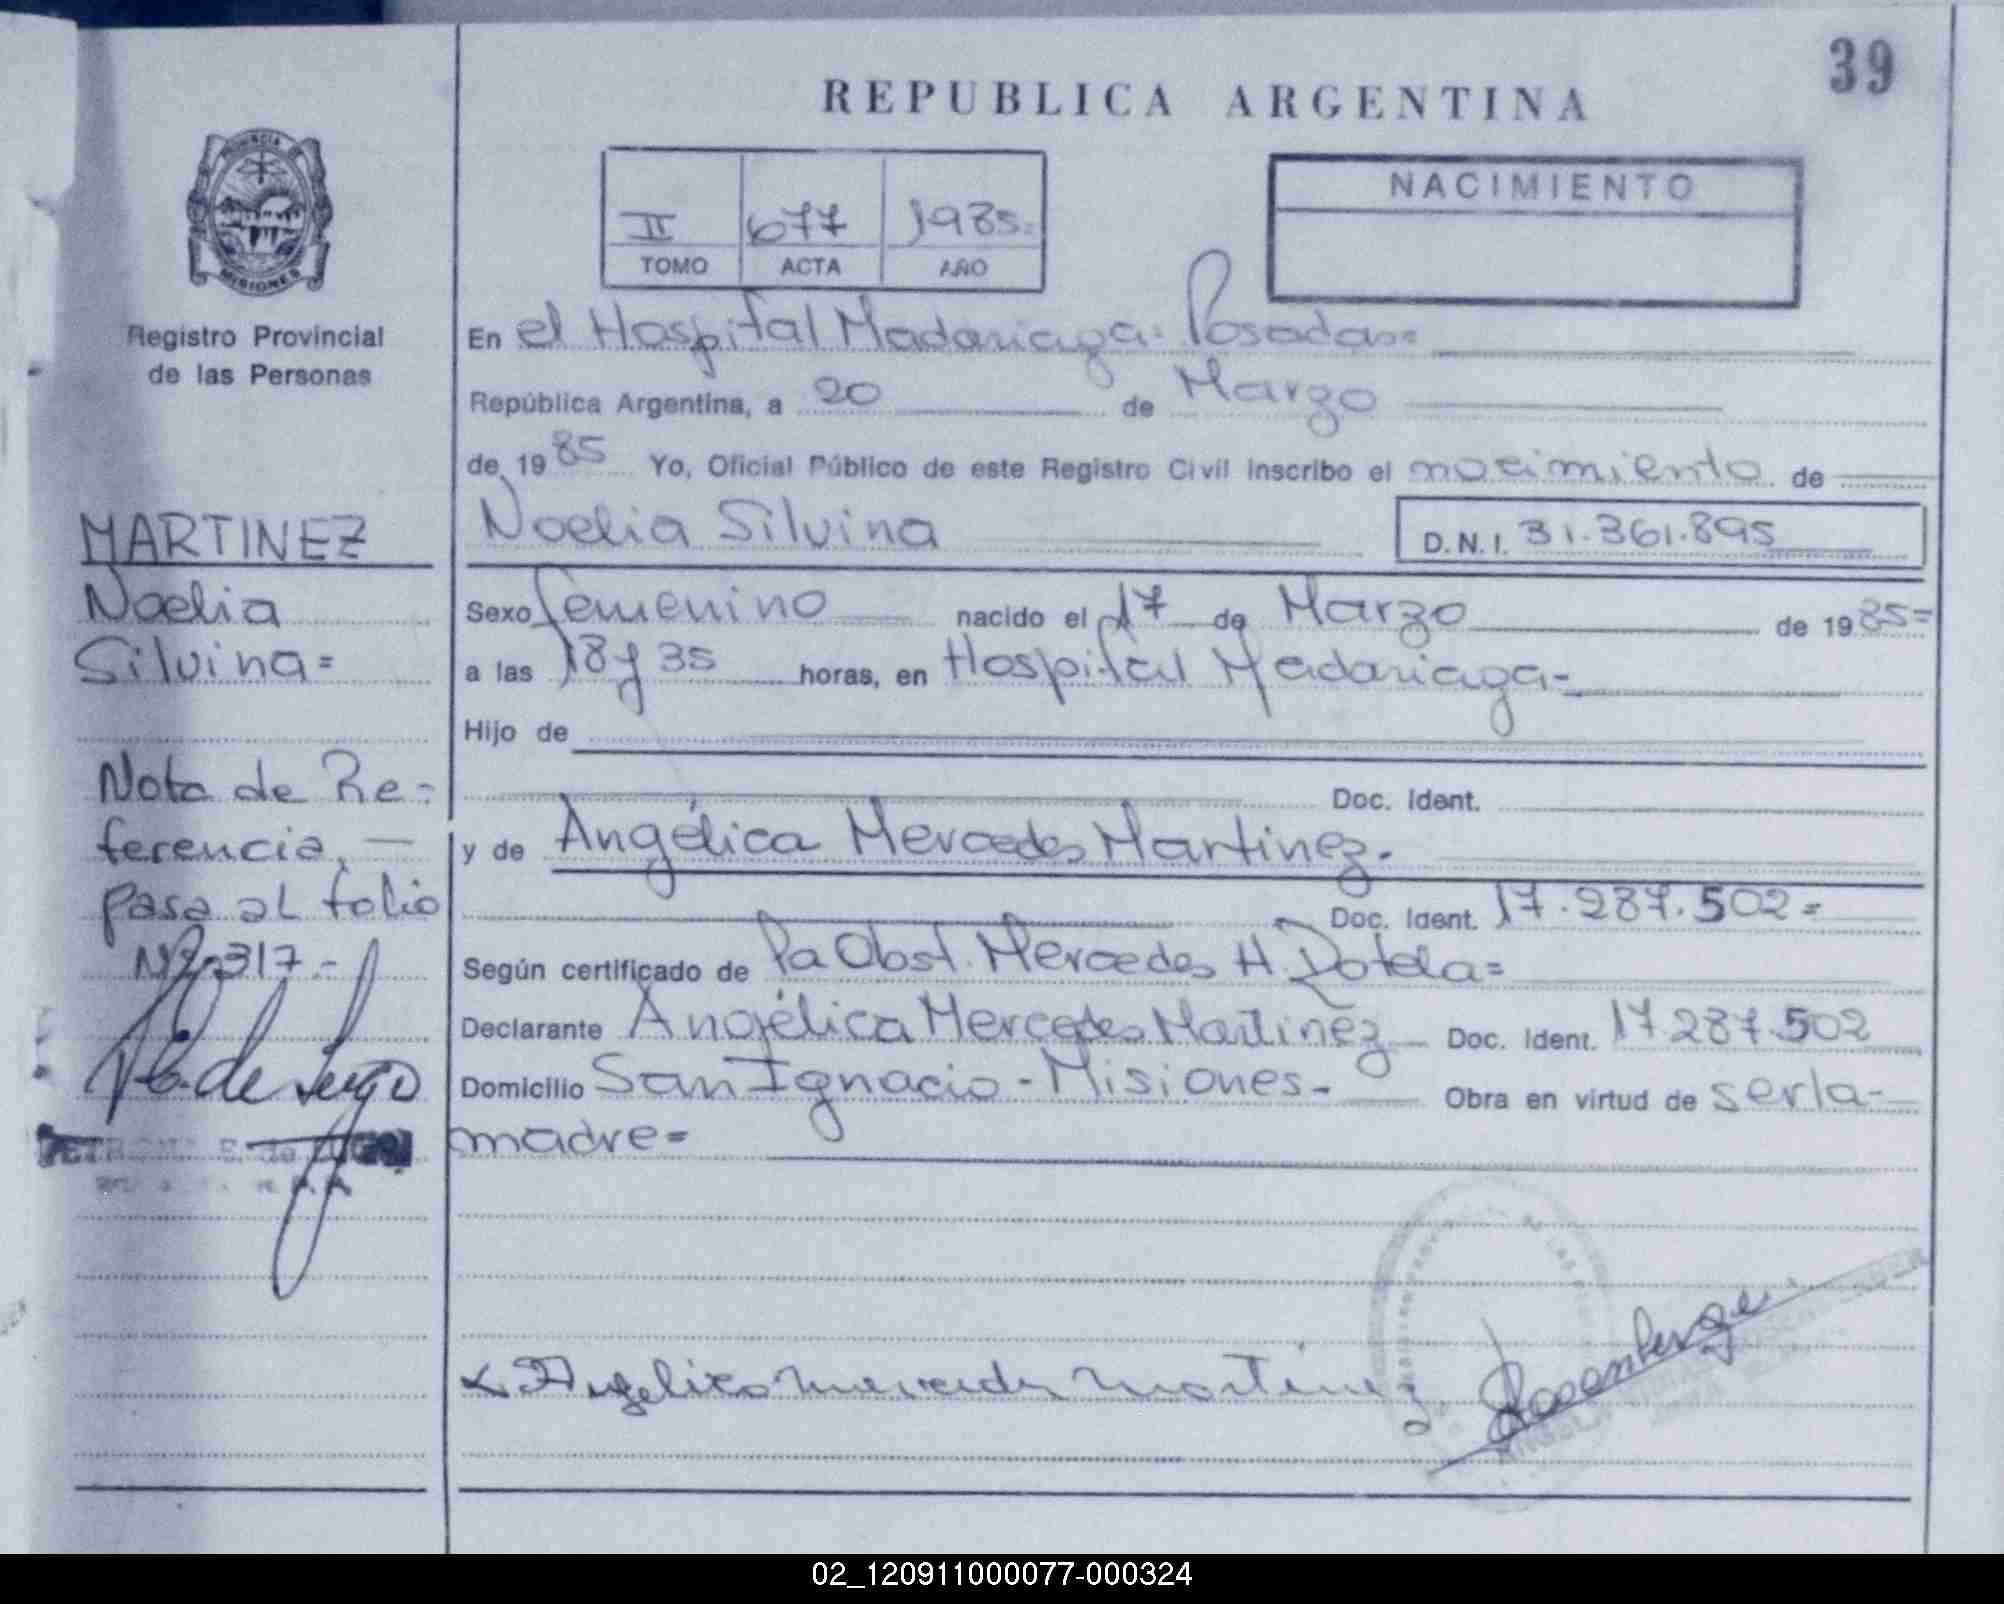 39
REPUBLICA ARGENTINA
PROVINCIA DE
MISIONES
II 677 1985=
TOMO ACTA AÑO
NACIMIENTO
Registro Provincial
de las Personas
En el Hospital Madariaga- Posadas=
República Argentina, a 20 de Marzo
de 1985 Yo, Oficial Público de este Registro Civil inscribo el nacimiento de
Noelia Silvina D.N.I. 31.361.895
MARTINEZ
Noelia
Silvina=
Sexo femenino nacido el 17 de Marzo de 1985=
a las 18 y 35 horas, en Hospital Madariaga-
Hijo de
Doc. Ident.
y de Angélica Mercedes Martinez.
Doc. Ident. 17.287.502=
Nota de Re-
ferencia,
pasa al folio
Nº 317.-
Según certificado de la Obst. Mercedes H. Dotela=
Declarante Angélica Mercedes Martinez Doc. Ident. 17.287.502
Domicilio San Ignacio - Misiones- Obra en virtud de ser la-
madre=
Angelica Mercedes Martinez
02_120911000077-000324